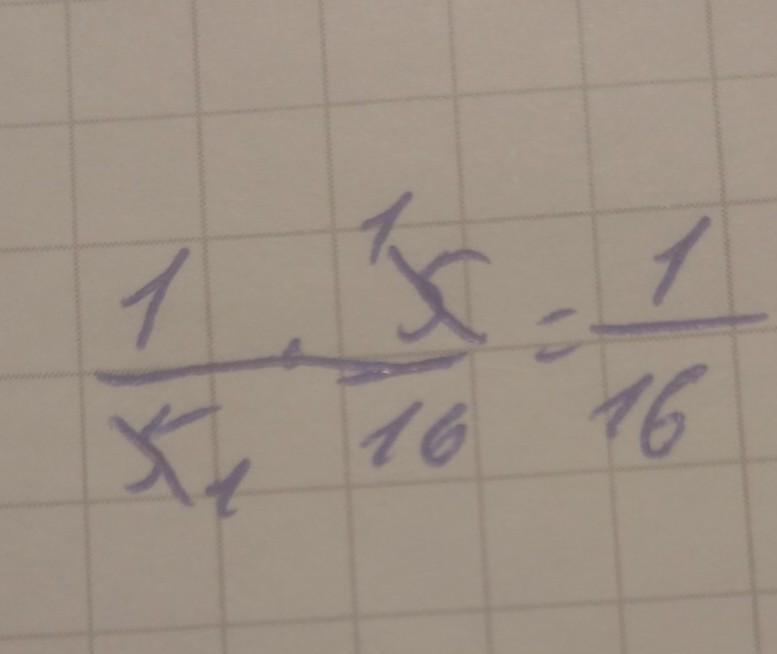 1/5 1 · 1 5/16 = 1/16